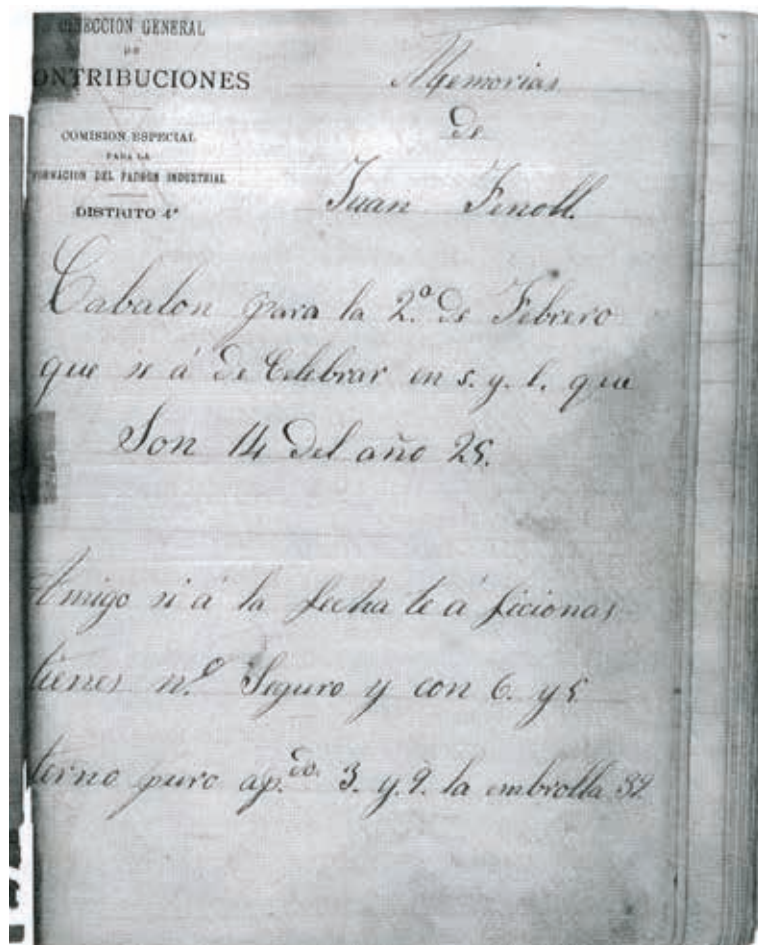 DIRECCION GENERAL
DE
CONTRIBUCIONES
COMISION ESPECIAL
PARA LA
FORMACION DEL PADRON INDUSTRIAL
DISTRITO 4º
Memorias
de
Juan Fenoll.
Cabalon para la 2.ª de Febrero
que se á de Celebrar en s. y. l. que
Son 14 del año 25.
Amigo si á la fecha te á ficionas
tienes n.º Seguro y con 6. y 5.
terno puro ap.do 3. y. 9. la embrolla 32.